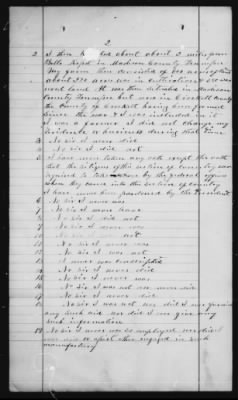 2
2 I then lived about about 3 miles from
Bells Depot in Madison County Tennessee
My farm then consisted of 600 acres of land
about 220 acres was in cultivation & 400 was
wood land. It was then situated in Madison
County Tennessee but now in Crockett County
the County of Crockett having been formed
since the war & I was included in it
I was a farmer I did not change my
residence or business during that time
3 No sir I never did
4 No sir I did not
5 I have never taken any oath except the oath
that the citizens of this section of country was
required to take by the federal officers
when they came into this section of country
I have never been pardoned by the President
6 No sir I never was
7 No sir I never have
8 No sir I did not
9 No sir I never was
10 No sir I was not
11 No sir I never was
12 No sir I was not
13 I never was conscripted
14 No sir I never did
15 No sir I never was
16 No sir I was not nor never did
17 No sir I never did
18 No sir I was not nor did I ever furnish
any such aid nor did I ever give any
such information
19 No sir I never was so employed nor did I
ever aid or assist others engaged in such
manufactory